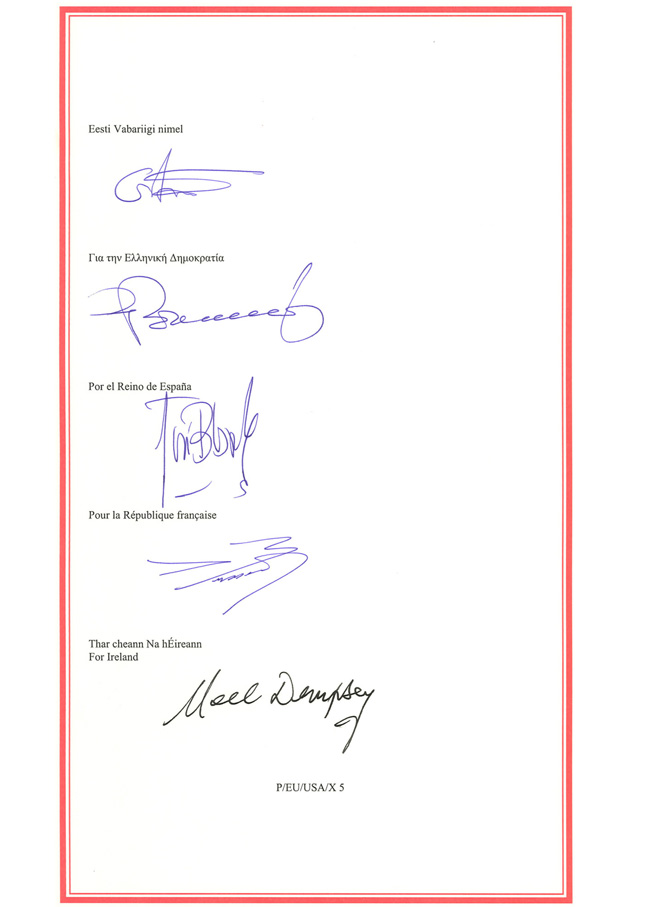 Eesti Vabariigi nimel
Για την Ελληνική Δημοκρατία
Por el Reino de España
Pour la République française
Thar cheann Na hÉireann
For Ireland
Noel Dempsey
P/EU/USA/X 5